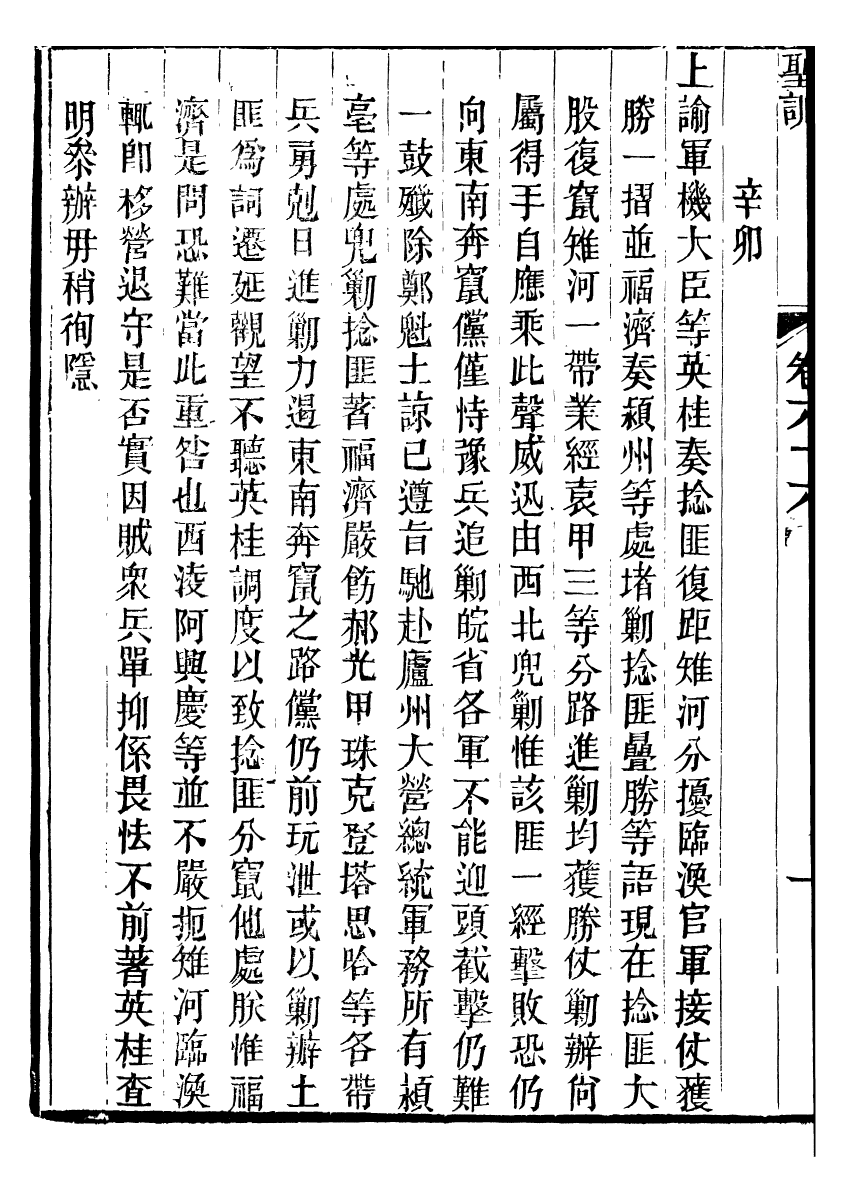 聖訓
卷六十六
一
辛卯
上諭軍機大臣等英桂奏捻匪復距雉河分擾臨渙官軍接仗獲
勝一摺並福濟奏潁州等處堵勦捻匪疊勝等語現在捻匪大
股復竄雉河一帶業經袁甲三等分路進勦均獲勝仗勦辦尙
屬得手自應乘此聲威迅由西北兜勦惟該匪一經擊敗恐仍
向東南奔竄儻僅恃豫兵追勦皖省各軍不能迎頭截擊仍難
一鼓殲除鄭魁士諒已遵旨馳赴廬州大營總統軍務所有潁
亳等處兜勦捻匪著福濟嚴飭郝光甲珠克登塔思哈等各帶
兵勇剋日進勦力遏東南奔竄之路儻仍前玩泄或以勦辦土
匪爲詞遷延觀望不聽英桂調度以致捻匪分竄他處朕惟福
濟是問恐難當此重咎也西淩阿興慶等並不嚴扼雉河臨渙
輒卽移營退守是否實因賊衆兵單抑係畏怯不前著英桂查
明叅辦毋稍徇隱